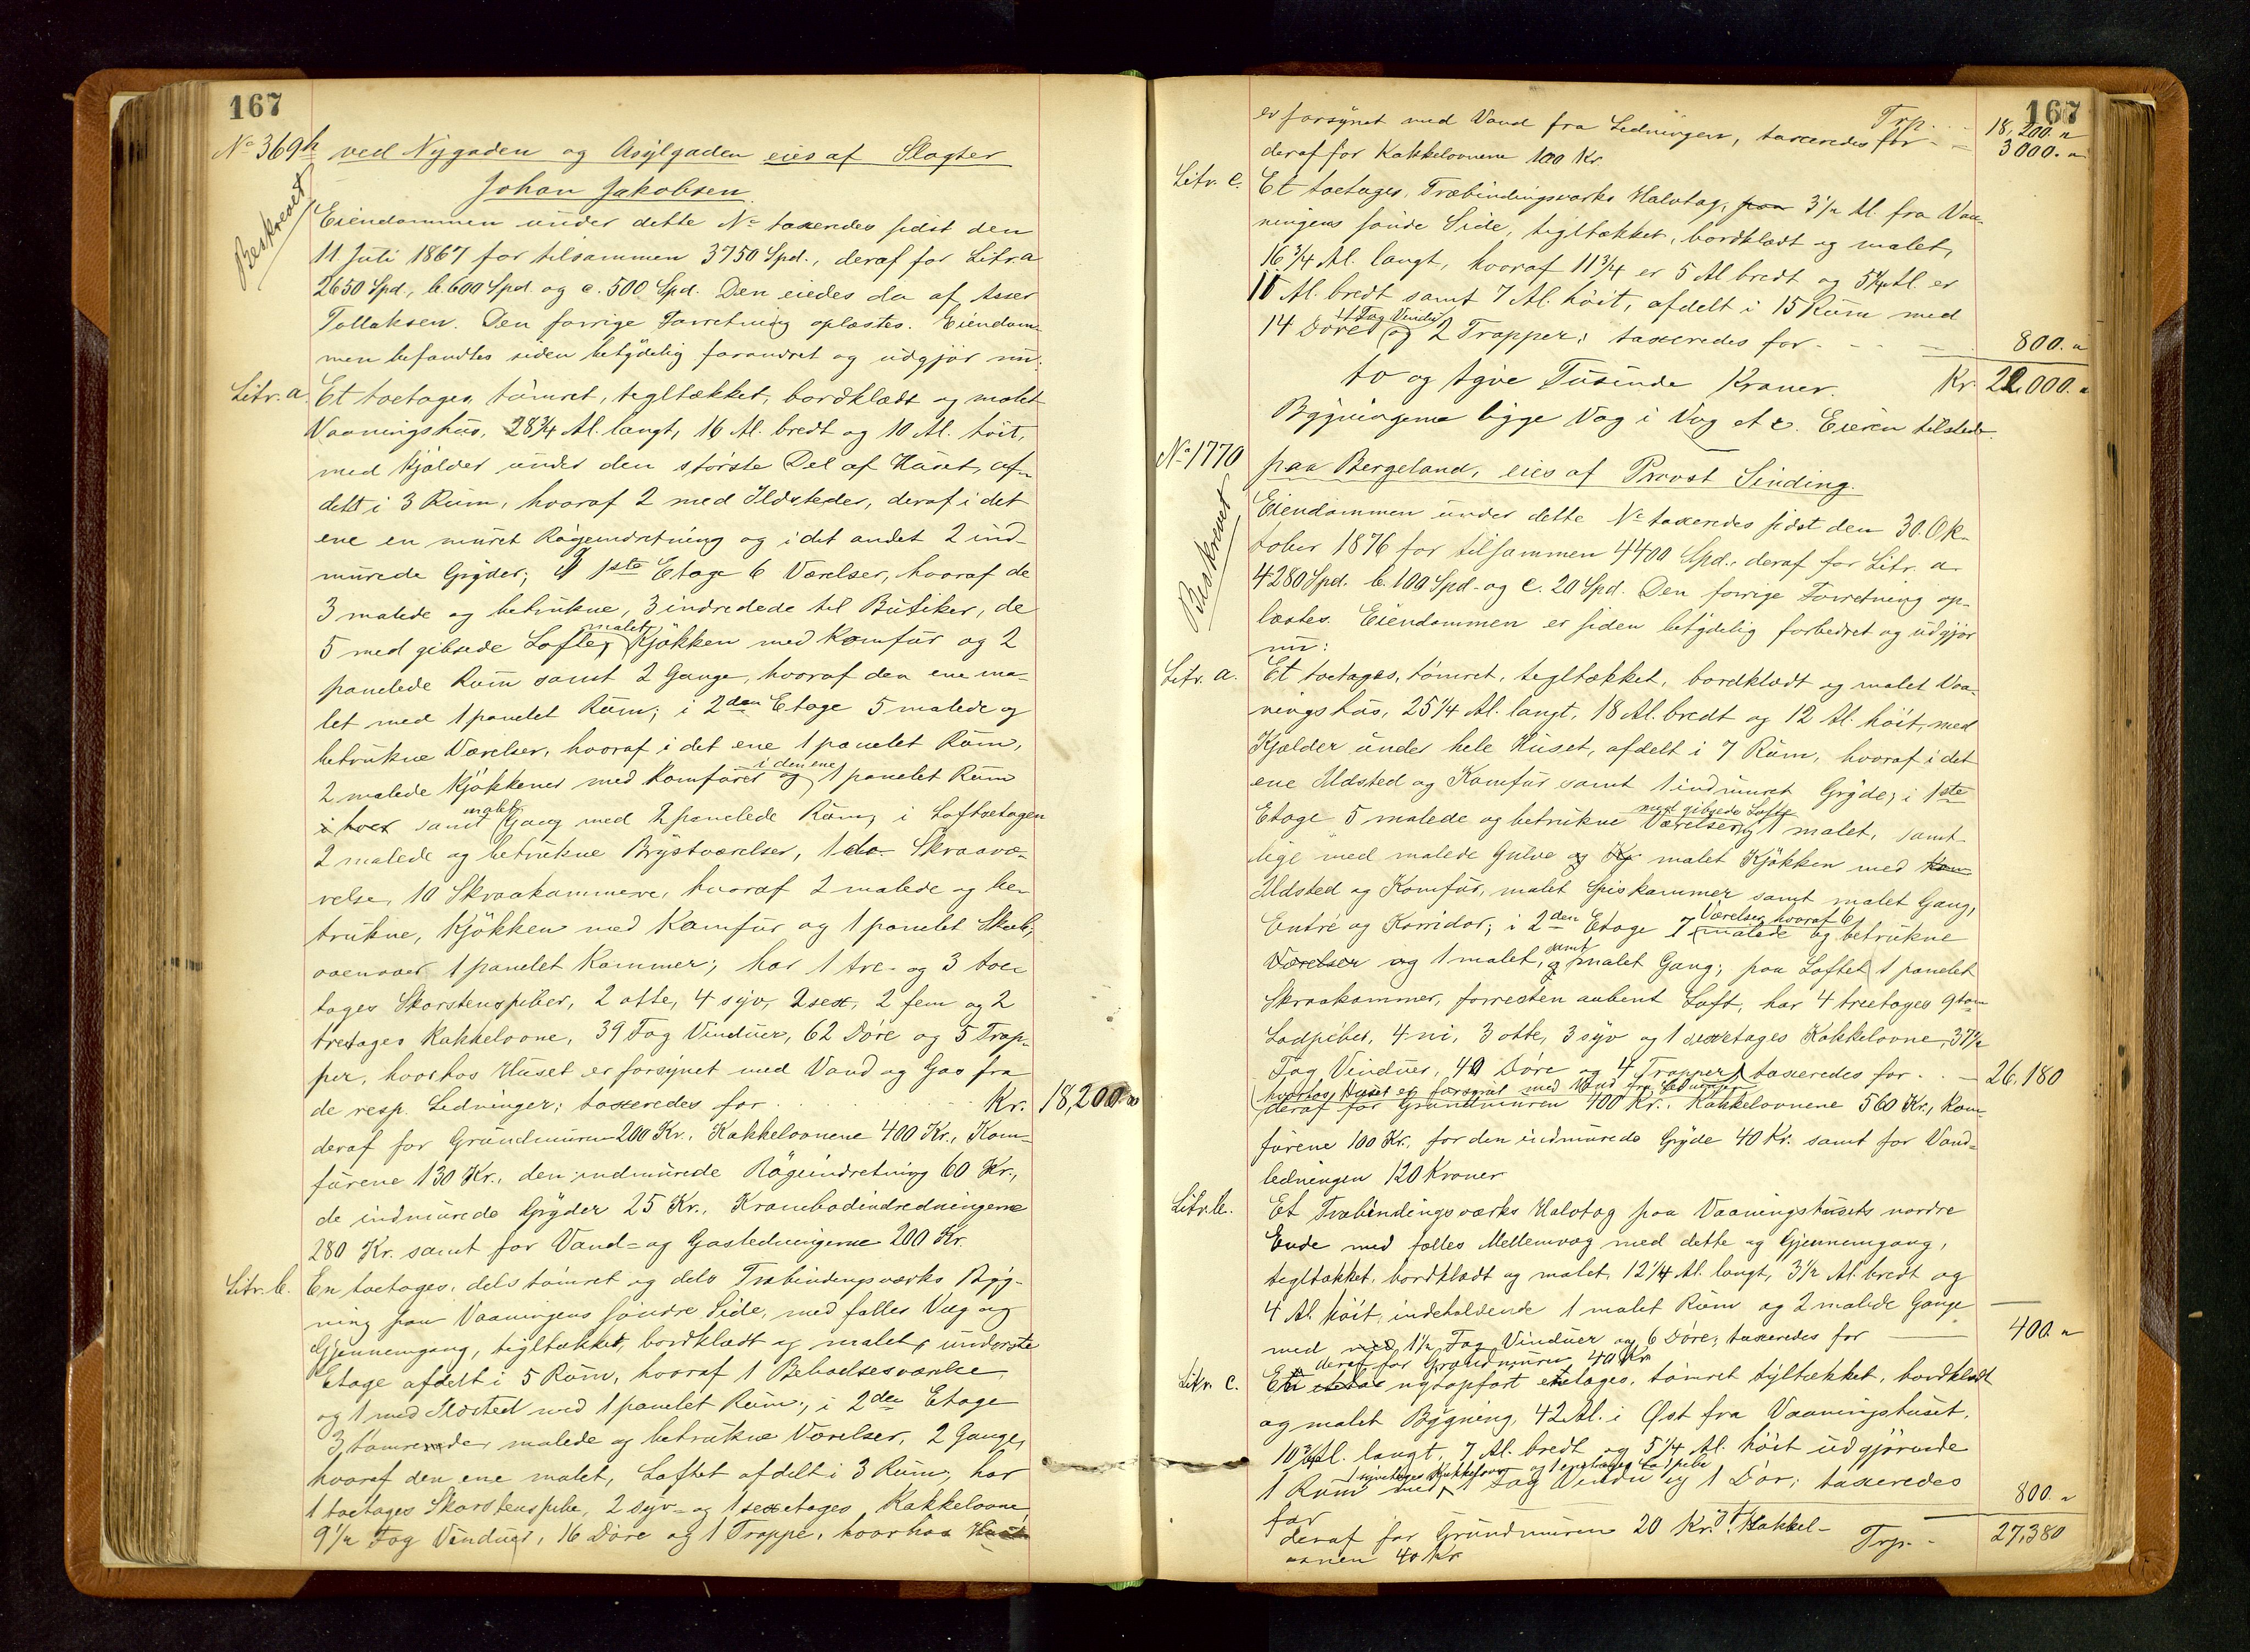 167
No 369h ved Nygaden og Asylgaden eies af Slagter
Johan Jakobsen.
Beskrevet
Eiendommen under dette No taxeredes sidst den
11 Juli 1867 for tilsammen 3750 Spd., deraf for Litr. a
2650 Spd, b. 600 Spd. og c. 500 Spd. Den eiedes da af Asser
Tollaksen. Den forrige Forretning oplæstes. Eiendom-
men befandtes siden betydelig forandret og udgjør nu:
Litr. a. Et toetages, tømret, tegltækket, bordklædt og malet
Vaaningshus, 28 3/4 Al. langt, 16 Al. bredt og 10 Al. høit,
med Kjælder under den største Del af Huset, af-
delt i 3 Rum, hvoraf 2 med Ildsteder, deraf i det
ene en muret Røgeindretning og i det andet 2 ind-
murede Gryder; I 1ste Etage 6 Værelser, hvoraf de
3 malede og betrukne, 3 indredede til Butiker, de
5 med gibsede Lofte, malet Kjøkken med Komfur og 2
panelede Rum samt 2 Gange, hvoraf den ene ma-
let med 1 panelet Rum; i 2den Etage 5 malede og
betrukne Værelser, hvoraf i det ene 1 panelet Rum,
2 malede Kjøkkener med Komfurer og i den ene 1 panelet Rum
i hver samt malet Gang med 2 panelede Rum, i Loftsetagen
2 malede og betrukne Brystværelser, 1 do. Skraavæ-
relse, 10 Skraakammere, hvoraf 2 malede og be-
trukne, Kjøkken med Komfur og 1 panelet Skab,
ovenover 1 panelet Kammer; har 1 tre- og 3 toe-
tages Skorstenspiber, 2 otte, 4 syv, 2 sex, 2 fem og 2
tretages Kakkelovne, 39 Fag Vinduer, 62 Døre og 5 Trap-
per, hvorhos Huset er forsynet med Vand og Gas fra
de resp. Ledninger; taxeredes for Kr. 18,200.00
deraf for Grundmuren 200 Kr., Kakkelovnene 400 Kr., Kom-
furene 130 Kr., den indmurede Røgeindretning 60 Kr.,
de indmurede Gryder 25 Kr., Krambodindredningerne
280 Kr. samt for Vand- og Gasledningerne 200 Kr.
Litr. b. En toetages, dels tømret og dels Træbindingsværks Byg-
ning paa Vaaningens søndre Side, med fælles Væg og
Gjennemgang, tegltækket, bordklædt og malet, underste
Etage afdelt i 5 Rum, hvoraf 1 Beboelsesværelse
og 1 med Ildsted med 1 panelet Rum; i 2den Etage
3 tømrede, malede og betrukne Værelser, 2 Gange,
hvoraf den ene malet, Loftet afdelt i 3 Rum, har
1 toetages Skorstenspibe, 2 syv- og 1 sexetages Kakkelovne,
9 1/2 Fag Vinduer, 16 Døre og 1 Trappe, hvorhos Huset
167
Trp. 18,200.00
er forsynet med Vand fra Ledningen, taxeredes for 3000.00
deraf for Kakkelovnene 100 Kr.
Litr. c. Et toetages, Træbindingsværks Halvtag, paa 3 1/2 Al. fra Vaa-
ningens søndre Side, tegltækket, bordklædt og malet,
16 3/4 Al. langt, hvoraf 11 3/4 er 5 Al bredt og 5 1/4 Al. er
11 Al. bredt samt 7 Al. høit, afdelt i 15 Rum med
14 Døre, 11 Fag Vindu og 2 Trapper; taxeredes for 800.00
to og tyve Tusinde Kroner. Kr. 22,000.00
Bygningerne ligge Væg i Væg etc. Eieren tilstede.
No 1770 paa Bergeland, eies af Provst Sinding.
Beskrevet
Eiendommen under dette No taxeredes sidst den 30. Ok-
tober 1876 for tilsammen 4400 Spd., deraf for Litr. a.
4280 Spd. b. 100 Spd. og c. 20 Spd. Den forrige Forretning op-
læstes. Eiendommen er siden betydelig forbedret og udgjør
nu:
Litr. a. Et toetages, tømret, tegltækket, bordklædt og malet Vaa-
ningshus, 25 1/4 Al. langt, 18 Al. bredt og 12 Al. høit, med
Kjælder under hele Huset, afdelt i 7 Rum, hvoraf i det
ene Ildsted og Komfur samt 1 indmuret Gryde; i 1ste
Etage 5 malede og betrukne Værelser med gibsede Lofte og 1 malet, samt-
lige med malede Gulve og Kj malet Kjøkken med Kom
Ildsted og Komfur, malet Spiskammer samt malet Gang,
Entré og Korridor; i 2den Etage 7 Værelser hvoraf 6 malede og betrukne
Værelser og 1 malet, samt og malet Gang; paa Loftet 1 panelet
Skraakammer, forresten aabent Loft, har 4 treetages
Lodpiber, 4 ni, 3 otte, 3 syv og 1 sexetages Kakkelovne, 37 1/2
Fag Vinduer, 40 Døre og 4 Trapper, taxeredes for 26,180
hvorhos Huset er forsynet med Vand fra Ledningen
deraf for Grundmuren 400 Kr., Kakkelovnene 560 Kr., Kom-
furene 100 Kr., for den indmurede Gryde 40 Kr. samt for Vand-
ledningen 120 Kroner
Litr. b. Et Træbindingsværks Halvtag paa Vaaningshusets nordre
Ende med fælles Mellemvæg med dette og Gjennemgang,
tegltækket, bordklædt og malet, 12 1/4 Al. langt, 3 1/2 Al. bredt og
4 Al. høit, indeholdende 1 malet Rum og 2 malede Gange
med 1 1/2 Fag Vinduer og 6 Døre; taxeredes for 400.00
deraf for Grundmuren 40 Kr.
Litr. c. En nyopført etetages, tømret tegltækket, bordklædt
og malet Bygning, 42 Al. i Øst fra Vaaningshuset,
10 3/4 Al. langt, 7 Al. bredt og 5 1/4 Al. høit udgjørende
1 Rum med 1 syvetages Kakkelovn og 1 enetages Lodpibe 1 Fag Vindu og 1 Dør; taxeredes
for 800.00
deraf for Grundmuren 20 Kr. og Kakkel-
ovnen 40 Kr. Trp. 27,380